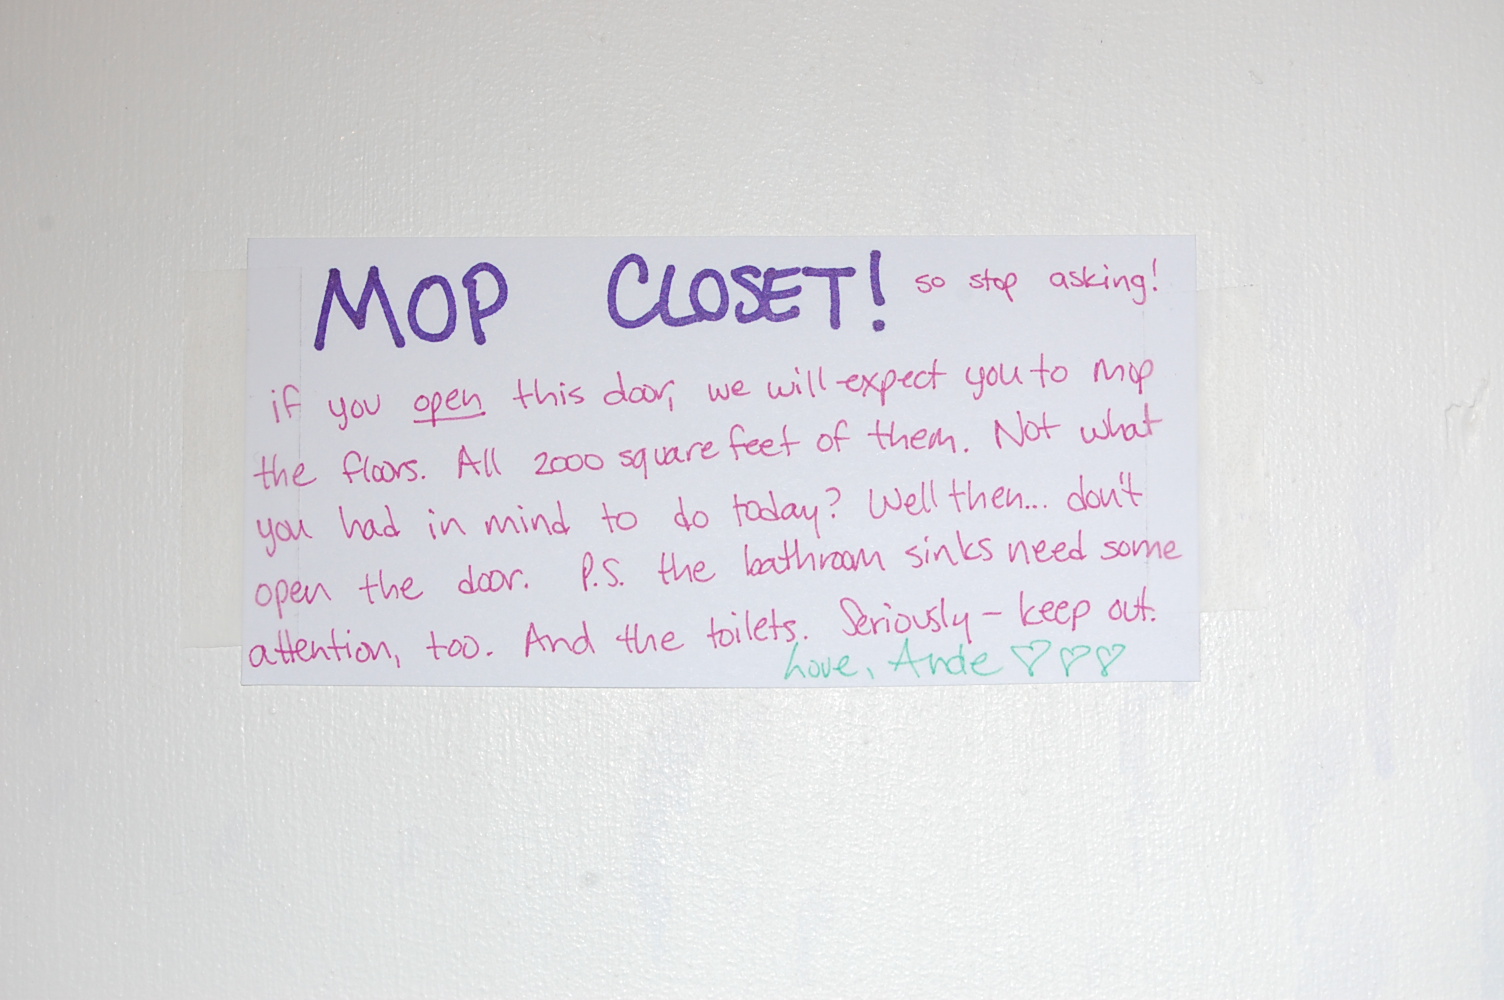 MOP CLOSET! so stop asking!
if you open this door, we will expect you to mop
the floors. All 2000 square feet of them. Not what
you had in mind to do today? Well then... don't
open the door. P.S. the bathroom sinks need some
attention, too. And the toilets. Seriously - keep out.
Love, Ande ♡♡♡